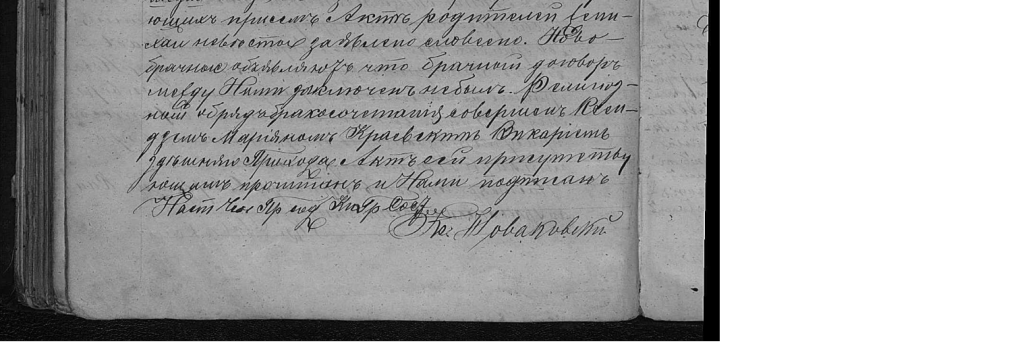 ющихъ при семъ Актѣ родителей
невѣсты заявлено словесно. Ново-
брачные объявляютъ что брачный договоръ
между Ними заключенъ небылъ. Религіоз-
ный обрядъ бракосочетанія совершенъ Ксен-
дземъ Маріяномъ Краевскимъ Викаріемъ
здѣшняго Прихода. Актъ сей присутству
ющимъ прочитанъ и Нами подписанъ
Наст Чин Гр